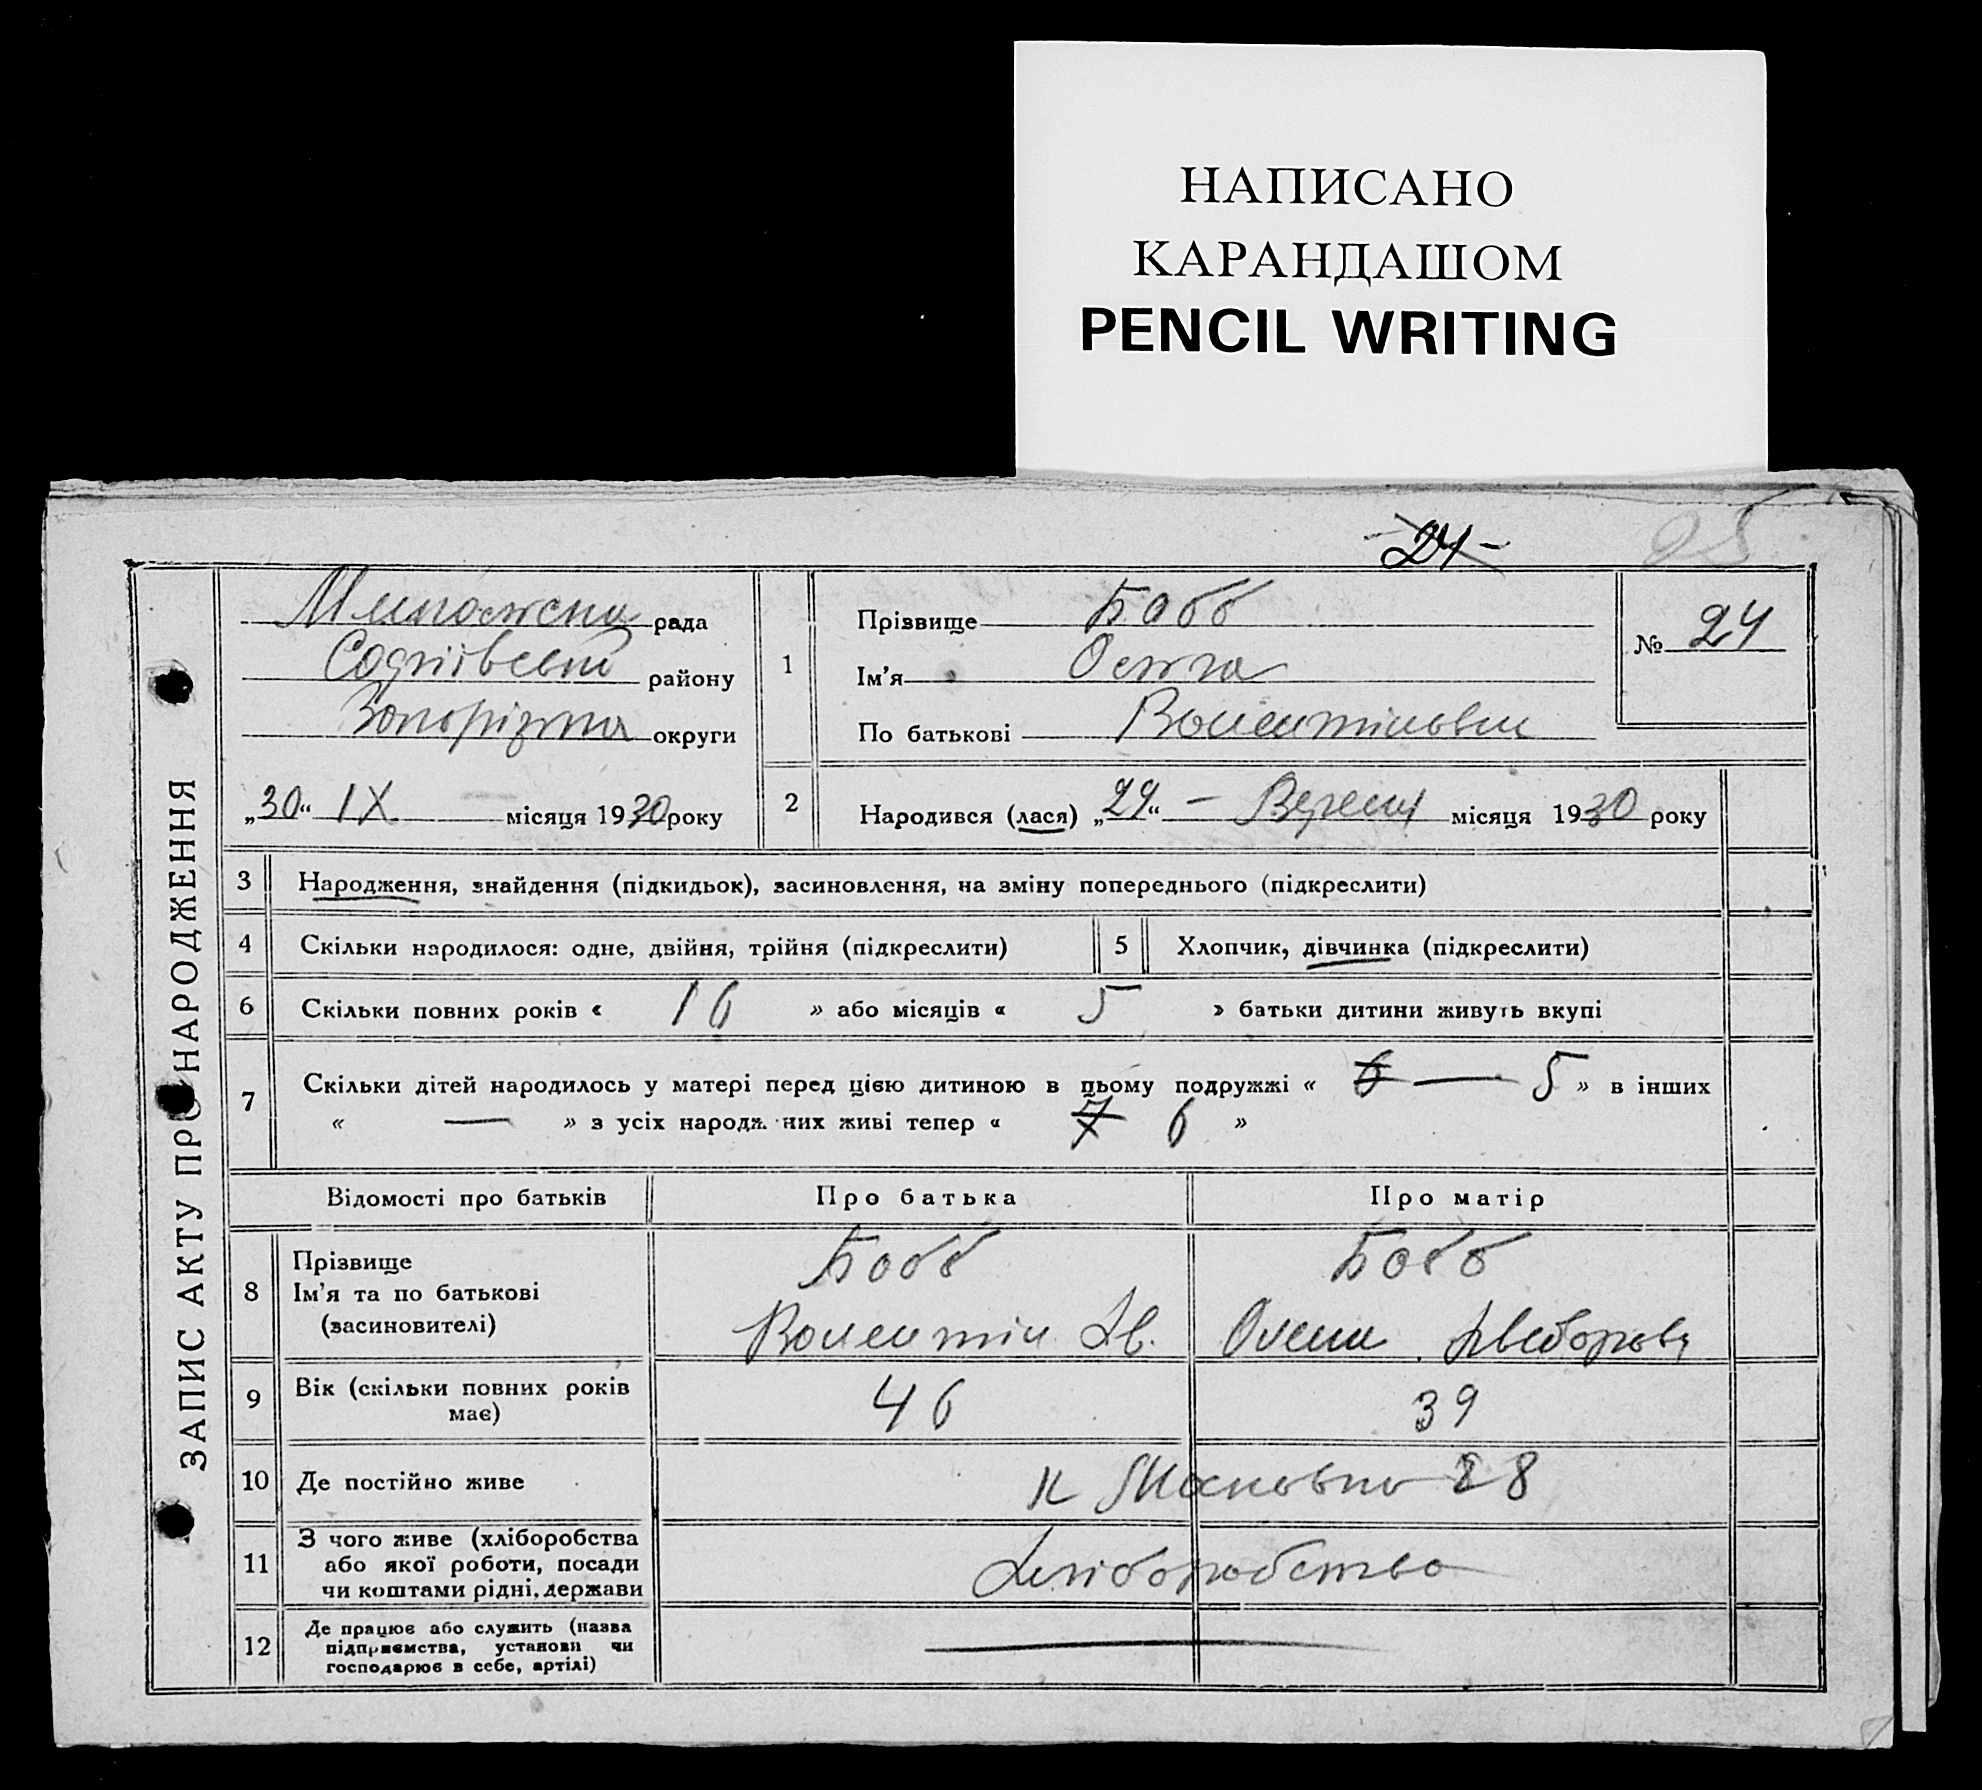 НАПИСАНО
КАРАНДАШОМ
PENCIL WRITING
24
25
ЗАПИС АКТУ ПРО НАРОДЖЕННЯ
рада
району
округи
„30“ IX місяця 1930 року
1
Прізвище Бобб
Ім’я Ольга
По батькові
№ 24
2
Народився (лася) „29“ – Вересня місяця 1930 року
3 Народження, знайдення (підкидьок), засиновлення, на зміну попереднього (підкреслити)
4 Скільки народилося: одне, двійня, трійня (підкреслити)
5 Хлопчик, дівчинка (підкреслити)
6 Скільки повних років « 16 » або місяців « 5 » батьки дитини живуть вкупі
7 Скільки дітей народилось у матері перед цією дитиною в цьому подружжі « 6 — 5 » в інших
« — » з усіх народж них живі тепер « 7 6 »
Відомості про батьків
Про батька
Про матір
8
Прізвище
Ім’я та по батькові
(засиновителі)
Бобб
Бобб
9
Вік (скільки повних років
має)
46
39
10 Де постійно живе
28
11
З чого живе (хліборобства
або якої роботи, посади
чи коштами рідні, держави
Хліборобство
12
Де працює або служить (назва
підприємства, установи чи
господарює в себе, артілі)